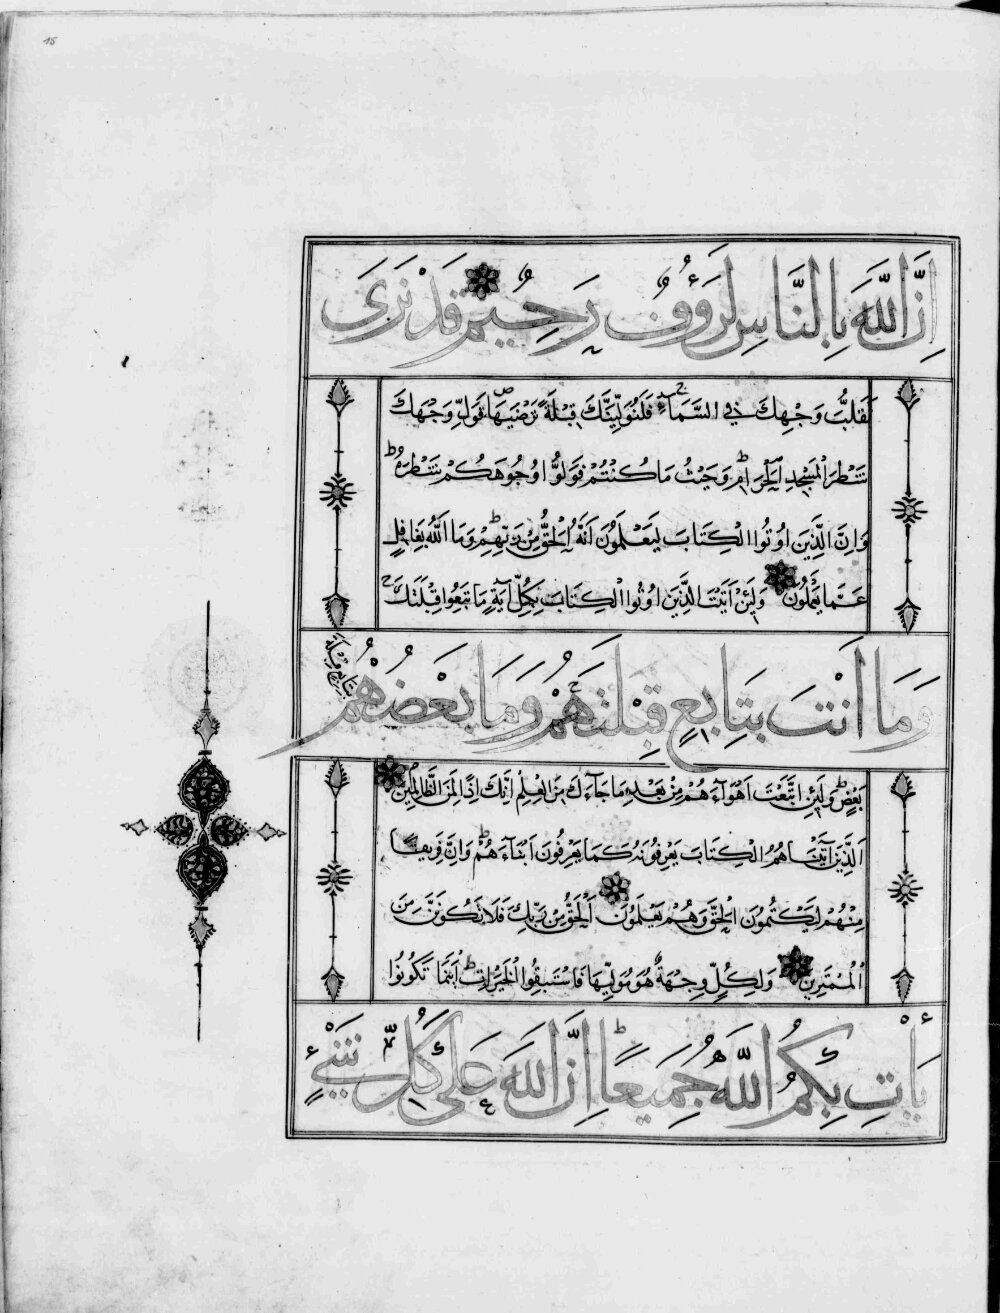 15
اِنَّ اللَّهَ بِالنَّاسِ لَرَؤُفٌ رَحِيمٌ قَدْ نَرَى
تَقَلُّبَ وَجْهِكَ فِي السَّمَآءِ فَلَنُوَلِّيَنَّكَ قِبْلَةً تَرْضَيهَا فَوَلِّ وَجْهَكَ
شَطْرَ الْمَسْجِدِ الْحَرَامِ وَحَيْثُ مَا كُنْتُمْ فَوَلُّوا وُجُوهَكُمْ شَطْرَهُ
وَاِنَّ الَّذِينَ اُوتُوا الْكِتَابَ لَيَعْلَمُونَ اَنَّهُ الْحَقُّ مِنْ رَبِّهِمْ وَمَا اللَّهُ بِغَافِلٍ
عَمَّا يَعْمَلُونَ وَلَئِنْ اَتَيْتَ الَّذِينَ اُوتُوا الْكِتَابَ بِكُلِّ آيَةٍ مَا تَبِعُوا قِبْلَتَكَ
وَمَا اَنْتَ بِتَابِعٍ قِبْلَتَهُمْ وَمَا بَعْضُهُمْ
بِتَابِعٍ قِبْلَةَ
بَعْضٍ وَلَئِنِ اتَّبَعْتَ اَهْوَآءَهُمْ مِنْ بَعْدِ مَا جَآءَكَ مِنَ الْعِلْمِ اِنَّكَ اِذًا لَمِنَ الظَّالِمِينَ
اَلَّذِينَ آتَيْنَاهُمُ الْكِتَابَ يَعْرِفُونَهُ كَمَا يَعْرِفُونَ اَبْنَآءَهُمْ وَاِنَّ فَرِيقًا
مِنْهُمْ لَيَكْتُمُونَ الْحَقَّ وَهُمْ يَعْلَمُونَ اَلْحَقُّ مِنْ رَبِّكَ فَلَا تَكُونَنَّ مِنَ
الْمُمْتَرِينَ وَلِكُلٍّ وِجْهَةٌ هُوَ مُوَلِّيهَا فَاسْتَبِقُوا الْخَيْرَاتِ اَيْنَمَا تَكُونُوا
يَأْتِ بِكُمُ اللَّهُ جَمِيعًا اِنَّ اللَّهَ عَلَى كُلِّ شَيْءٍ